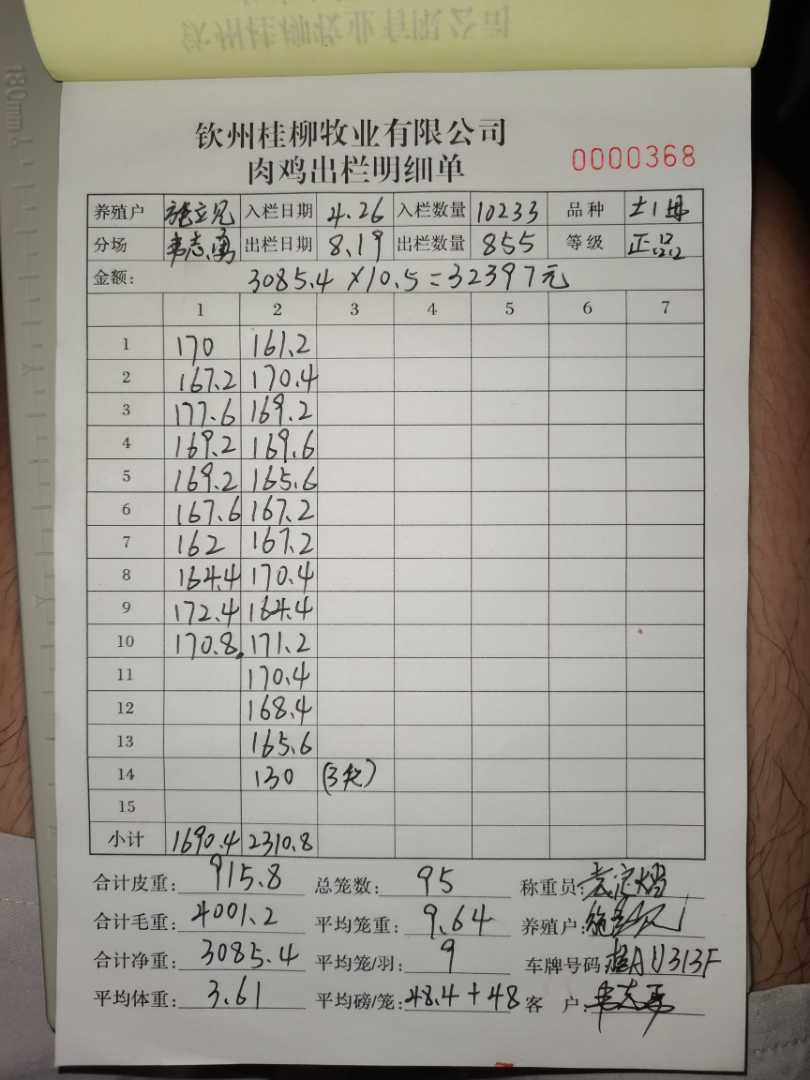 钦州桂柳牧业有限公司
肉鸡出栏明细单
0000368
养殖户 施立兄 入栏日期 4.26 入栏数量 10233 品种 土1母
分场 韦志勇 出栏日期 8.19 出栏数量 855 等级 正品
金额: 3085.4×10.5=32397元
1 2 3 4 5 6 7
1 170 161.2
2 167.2 170.4
3 177.6 169.2
4 169.2 169.6
5 169.2 165.6
6 167.6 167.2
7 162 167.2
8 164.4 170.4
9 172.4 164.4
10 170.8 171.2
11 170.4
12 168.4
13 165.6
14 130 (3笼)
15
小计 1690.4 2310.8
合计皮重: 915.8 总笼数: 95 称重员:
合计毛重: 4001.2 平均笼重: 9.64 养殖户:
合计净重: 3085.4 平均笼/羽: 9 车牌号码 桂AU313F
平均体重: 3.61 平均磅/笼: 48.4+48 客户: 韦志勇